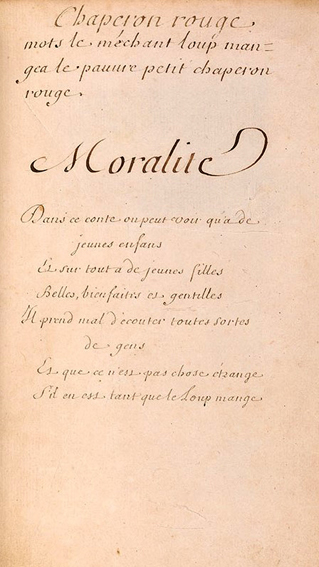 Chaperon rouge.
mots le méchant loup man=
gea le pauure petit chaperon
rouge.
Moralité
Dans ce conte on peut voir qu'a de
jeunes enfans
Et sur tout a de jeunes filles
Belles, bienfaites et gentilles
Il prend mal d'écouter toutes sortes
de gens
Et que ce n'est pas chose étrange
S'il en est tant que le Loup mange